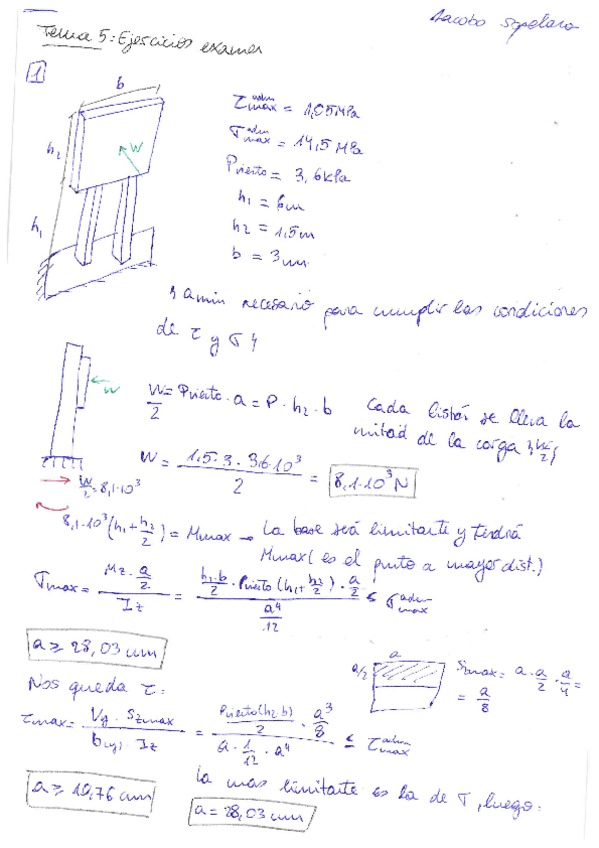 Jacobo Sopelana
Tema 5: Ejercicios examen
1
b
h2
W
h1
τmax^adm = 1,05 MPa
σmax^adm = 14,5 MPa
Pviento = 3,6 kPa
h1 = 6m
h2 = 1,5m
b = 3m
¿ amin necesario para cumplir las condiciones
de τ y σ ?
W
W/2 = Pviento · a = P · h2 · b
Cada listón se lleva la
mitad de la carga
W = 1,5·3·3,6·10³ / 2 = 8,1·10³ N
W/2 = 8,1·10³
8,1·10³ (h1 + h2/2) = Mmax → La base será limitante y tendrá
Mmax (es el punto a mayor dist.)
σmax = Mz · a/2 / Iz = h2·b/2 · Pviento (h1 + h2/2) · a/2 / a⁴/12 ≤ σmax^adm
a ≥ 28,03 cm
a
a/2
Szmax = a · a/2 · a/4 =
= a/8
Nos queda τ:
τmax = Vy · Szmax / b(y) · Iz = Pviento (h2·b)/2 · a³/8 / a · 1/12 · a⁴ ≤ τmax^adm
a ≥ 10,76 cm
La más limitante es la de σ, luego:
a = 28,03 cm